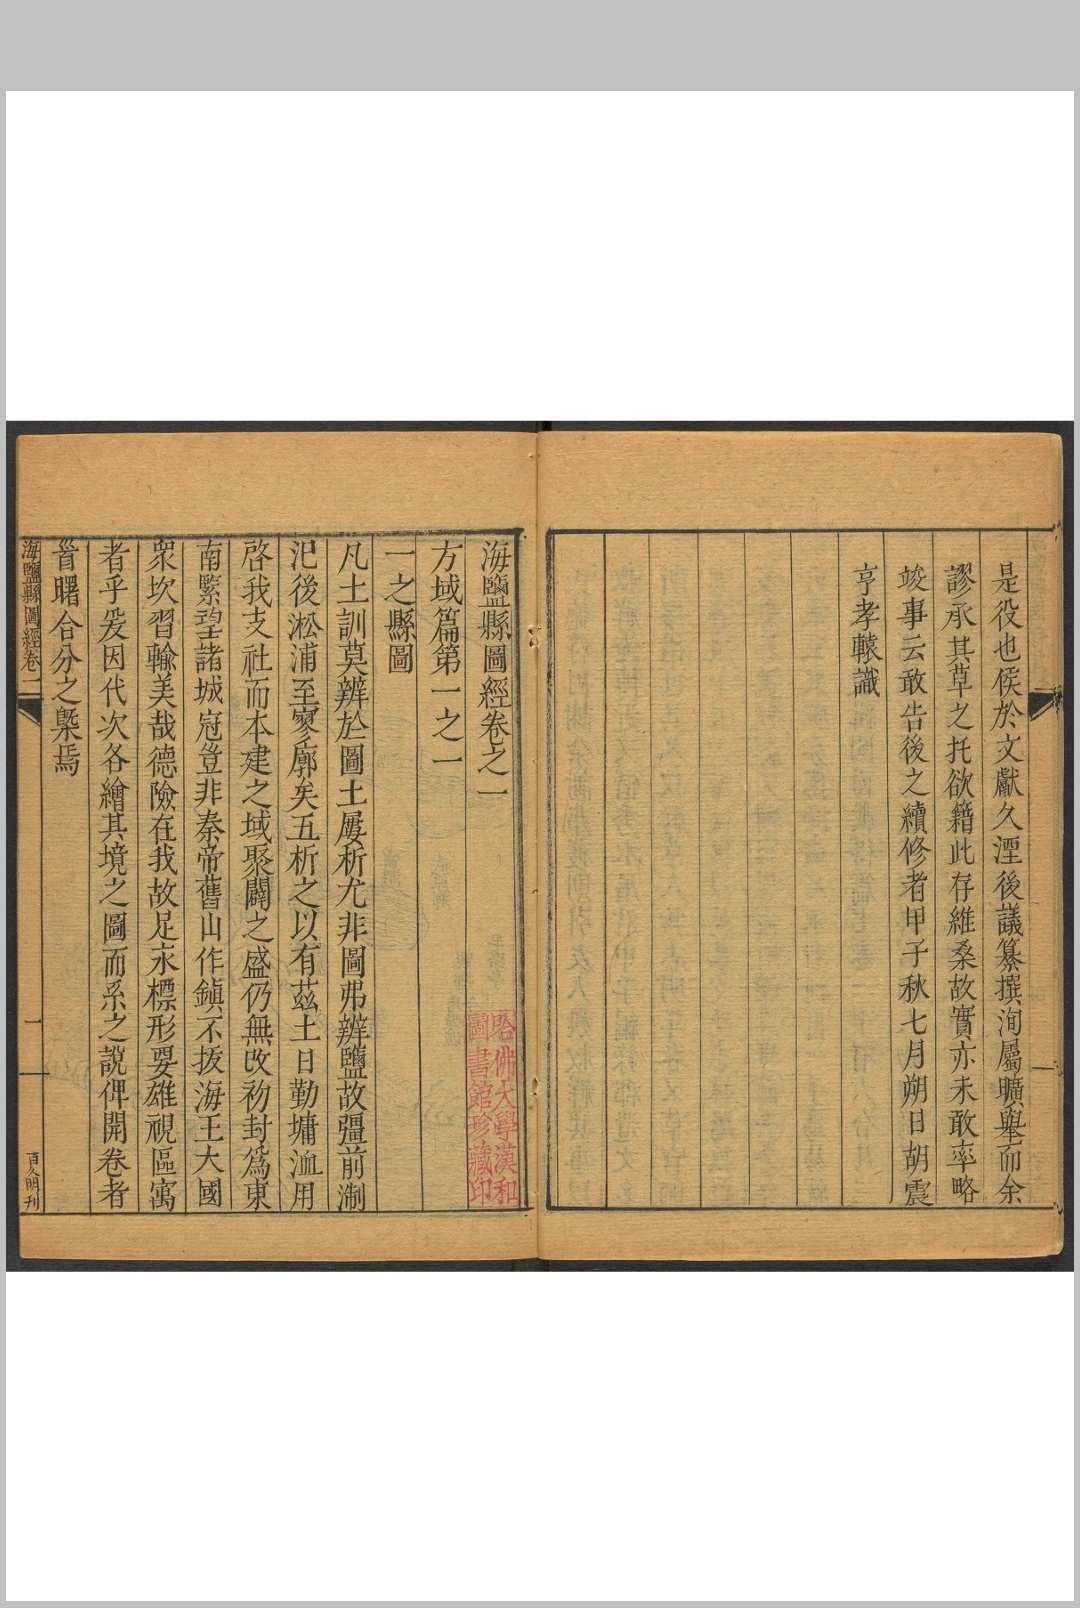 是役也俟於文獻久湮後議纂撰洵屬曠舉而余
謬承其草之托欲籍此存維桑故實亦未敢率略
竣事云敢告後之續修者甲子秋七月朔日胡震
亨孝轅識
海鹽縣圖經卷之一
方域篇第一之一
一之縣圖
凡土訓莫辨於圖土屢析尤非圖弗辨鹽故疆前漸
汜後淞浦至寥廓矣五析之以有茲土日勤墉洫用
啓我支社而本建之域聚闢之盛仍無改初封爲東
南緊望諸城冠豈非秦帝舊山作鎮不拔海王大國
衆坎習輸美哉德險在我故足永標形要雄視區寓
者乎爰因代次各繪其境之圖而系之說俾開卷者
曙合分之槩焉
海鹽縣圖經卷一
一
哈佛大學漢和
圖書館珍藏印